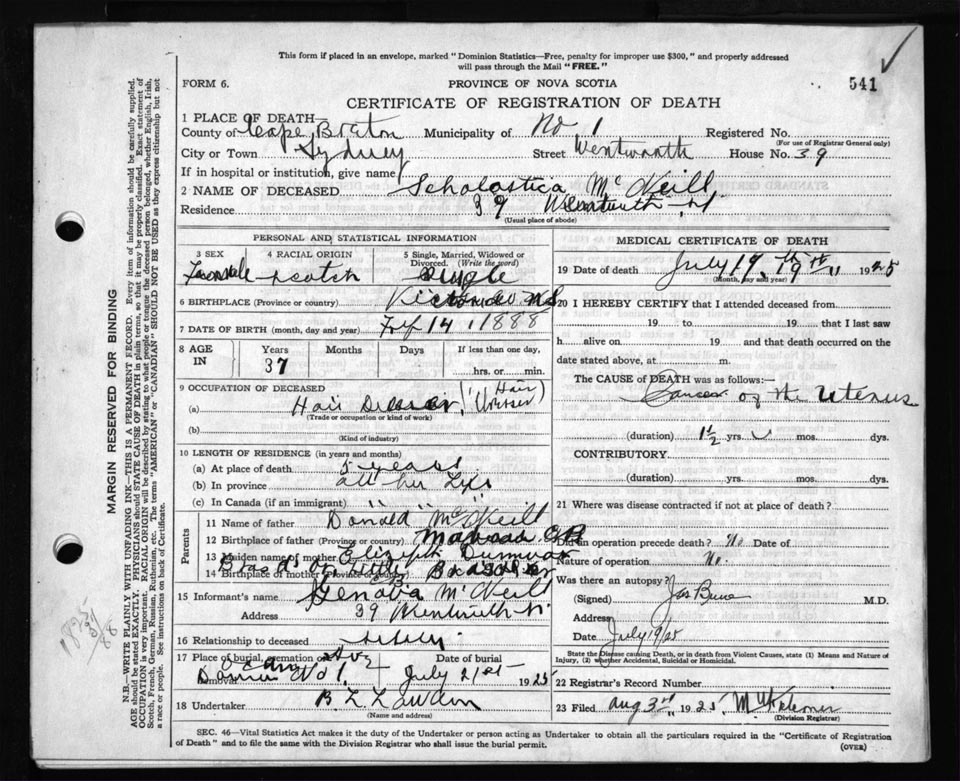 This form if placed in an envelope, marked "Dominion Statistics—Free, penalty for improper use $300," and properly addressed
will pass through the Mail "FREE."
FORM 6.
PROVINCE OF NOVA SCOTIA
541
CERTIFICATE OF REGISTRATION OF DEATH
1 PLACE OF DEATH—
County of Cape Breton Municipality of No. 1 Registered No.
(For use of Registrar General only)
City or Town Sydney Street Wentworth House No. 39
If in hospital or institution, give name
2 NAME OF DECEASED Scholastica McNeill
Residence 39 Wentworth St
(Usual place of abode)
PERSONAL AND STATISTICAL INFORMATION
3 SEX 4 RACIAL ORIGIN 5 Single, Married, Widowed or Divorced. (Write the word)
Female Scotch Single
6 BIRTHPLACE (Province or country) Victoria Co N.S.
7 DATE OF BIRTH (month, day and year) 14, 1888
8 AGE IN Years Months Days If less than one day,
37 hrs. or min.
9 OCCUPATION OF DECEASED
(a) Hair Dresser (Hair Dresser)
(Trade or occupation or kind of work)
(b)
(Kind of industry)
10 LENGTH OF RESIDENCE (in years and months)
(a) At place of death 5 years
(b) In province all her Life
(c) In Canada (if an immigrant) " " "
Parents
11 Name of father Donald McNeill
12 Birthplace of father (Province or country) C.B.
13 Maiden name of mother
14 Birthplace of mother (Province or country)
15 Informant's name Genova McNeill
Address 39 Wentworth St.
16 Relationship to deceased
17 Place of burial, cremation or removal Date of burial
No 1. July 21st 1925
18 Undertaker
(Name and address)
MEDICAL CERTIFICATE OF DEATH
19 Date of death July 19. 19th 1925
(Month, day and year)
20 I HEREBY CERTIFY that I attended deceased from
19 to 19 that I last saw
h alive on 19 and that death occurred on the
date stated above, at m.
The CAUSE of DEATH was as follows:—
Cancer of the Uterus
(duration) 1½ yrs. mos. dys.
CONTRIBUTORY
(duration) yrs. mos. dys.
21 Where was disease contracted if not at place of death?
Did an operation precede death? No Date of
Nature of operation No.
Was there an autopsy?
(Signed) M.D.
Address
Date July 19/25
State the Disease causing Death, or in death from Violent Causes, state (1) Means and Nature of
Injury, (2) whether Accidental, Suicidal or Homicidal.
22 Registrar's Record Number
23 Filed Aug 3rd 1925
(Division Registrar)
SEC. 46—Vital Statistics Act makes it the duty of the Undertaker or person acting as Undertaker to obtain all the particulars required in the "Certificate of Registration
of Death" and to file the same with the Division Registrar who shall issue the burial permit.
(OVER)
MARGIN RESERVED FOR BINDING
N.B.—WRITE PLAINLY WITH UNFADING INK—THIS IS A PERMANENT RECORD. Every item of information should be carefully supplied.
AGE should be stated EXACTLY. PHYSICIANS should STATE CAUSE OF DEATH in plain terms, so that it may be properly classified. Exact statement of
OCCUPATION is very important. RACIAL ORIGIN will be described by stating to what people or tongue the deceased person belonged, whether English, Irish,
Scotch, French, German, Russian, Ruthenian, etc. The terms "AMERICAN" or "CANADIAN" SHOULD NOT BE USED as they express citizenship but not
a race or people. See instructions on back of Certificate.